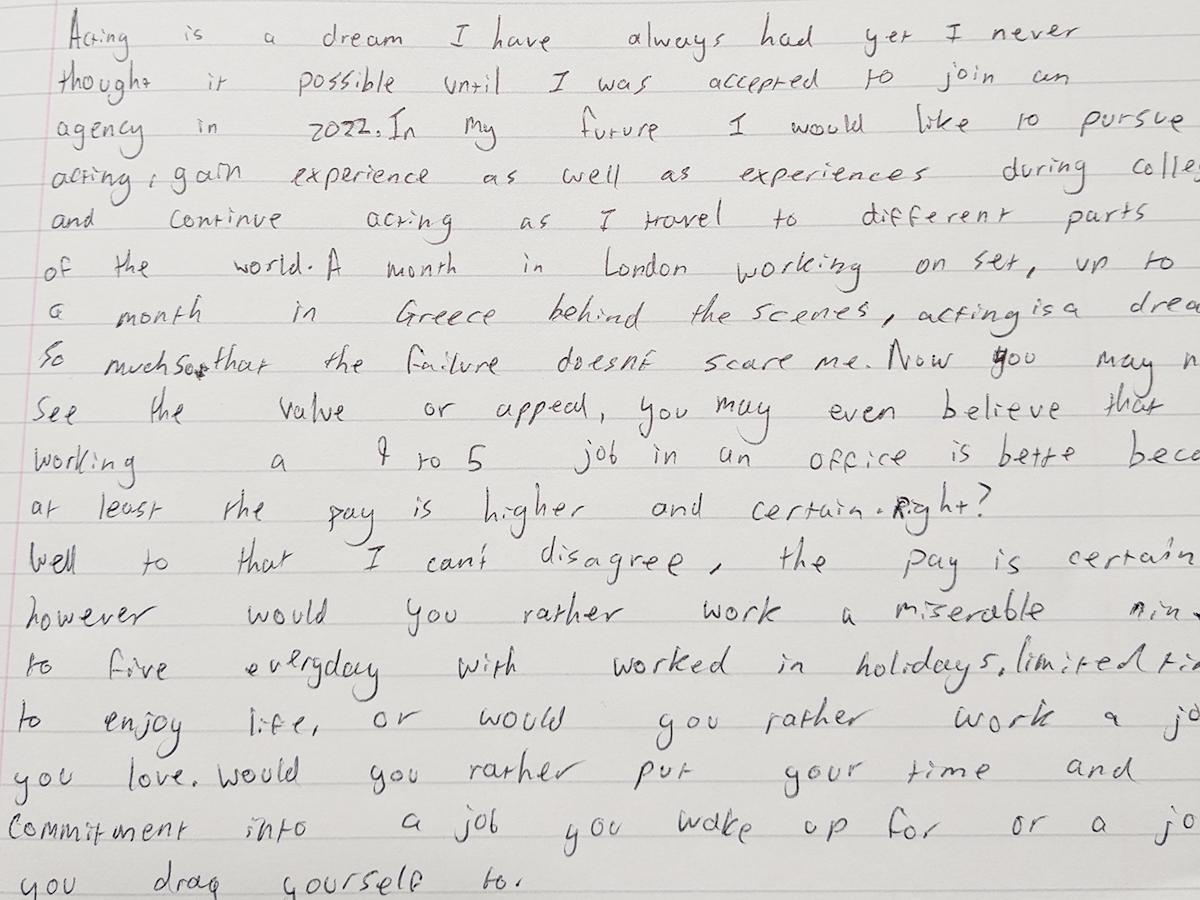 Acting is a dream I have always had yet I never
thought it possible until I was accepted to join an
agency in 2022. In my future I would like to pursue
acting, gain experience as well as experiences during colleg
and continue acting as I travel to different parts
of the world. A month in London working on set, up to
a month in Greece behind the scenes, acting is a drea
so much so that the failure doesn't scare me. Now you may n
see the value or appeal, you may even believe that
working a 9 to 5 job in an office is bette beca
at least the pay is higher and certain. Right?
Well to that I can't disagree, the pay is certain
however would you rather work a miserable nin
to five everyday with worked in holidays, limited tim
to enjoy life, or would you rather work a jo
you love. Would you rather put your time and
commitment into a job you wake up for or a jo
you drag yourself to.